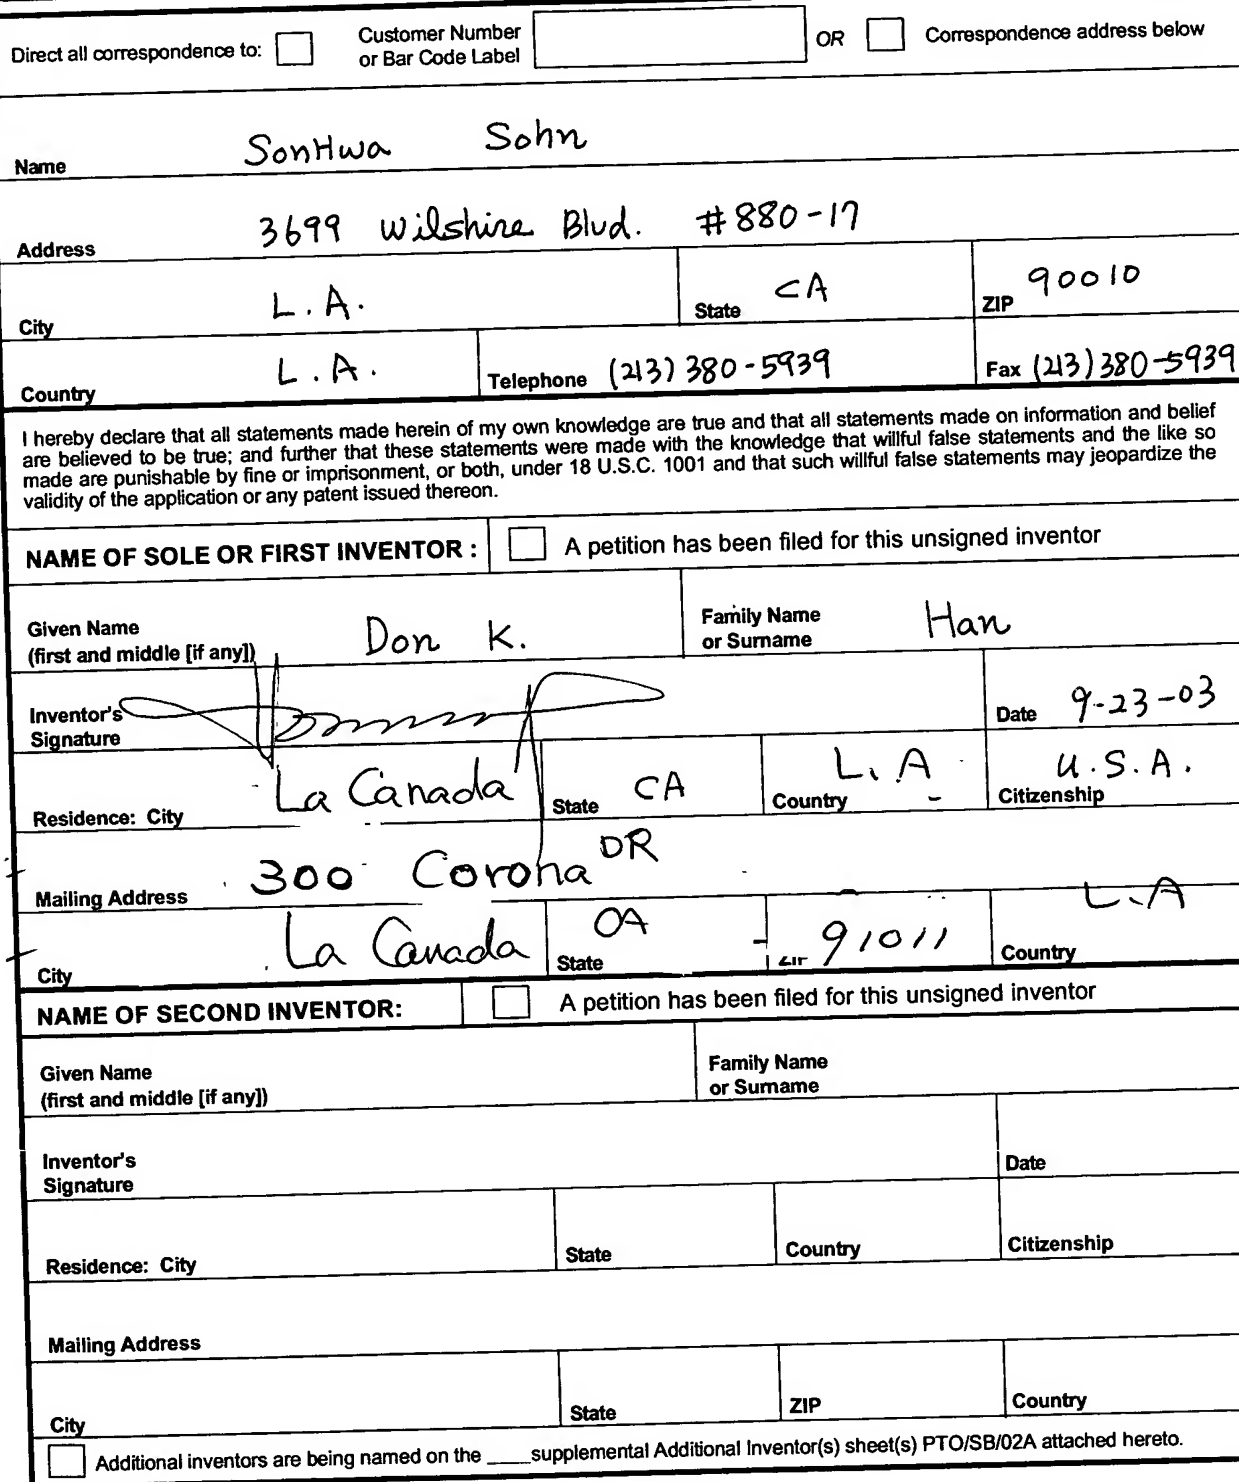 Direct all correspondence to: Customer Number or Bar Code Label OR Correspondence address below
Name SonHwa Sohn
Address 3699 Wilshire Blvd. #880-17
City L.A. State CA ZIP 90010
Country L.A. Telephone (213) 380-5939 Fax (213) 380-5939
I hereby declare that all statements made herein of my own knowledge are true and that all statements made on information and belief
are believed to be true; and further that these statements were made with the knowledge that willful false statements and the like so
made are punishable by fine or imprisonment, or both, under 18 U.S.C. 1001 and that such willful false statements may jeopardize the
validity of the application or any patent issued thereon.
NAME OF SOLE OR FIRST INVENTOR : A petition has been filed for this unsigned inventor
Given Name (first and middle [if any]) Don K. Family Name or Surname Han
Inventor's Signature Date 9-23-03
Residence: City La Canada State CA Country L.A Citizenship U.S.A.
Mailing Address 300 Corona DR
City La Canada State CA 91011 Country L.A
NAME OF SECOND INVENTOR: A petition has been filed for this unsigned inventor
Given Name (first and middle [if any]) Family Name or Surname
Inventor's Signature Date
Residence: City State Country Citizenship
Mailing Address
City State ZIP Country
Additional inventors are being named on the ____supplemental Additional Inventor(s) sheet(s) PTO/SB/02A attached hereto.